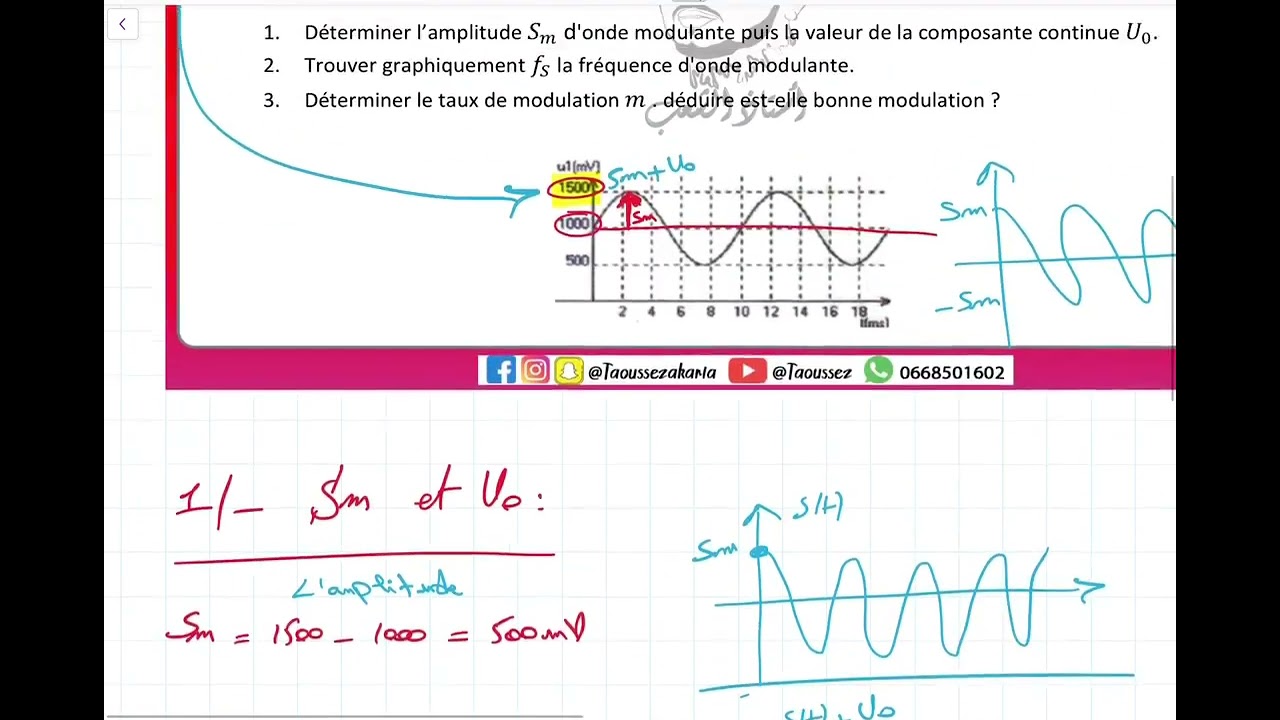 1. Déterminer l'amplitude Sₘ d'onde modulante puis la valeur de la composante continue U₀.
2. Trouver graphiquement fₛ la fréquence d'onde modulante.
3. Déterminer le taux de modulation m . déduire est-elle bonne modulation ?
أستاذ
u1(mV)
Sm + U₀
1500
Sm
1000
500
2 4 6 8 10 12 14 16 18
t(ms)
Sm
-Sm
@Taoussezakaria @Taoussez 0668501602
1/- Sm et U₀ :
L'amplitude
Sm = 1500 - 1000 = 500mV
S(t)
Sm
S(t) + U₀